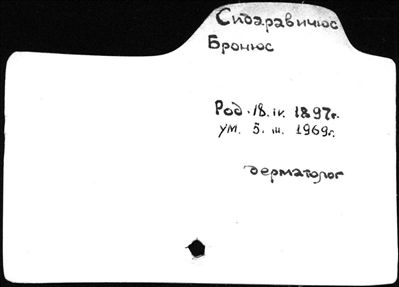 Сидаравичюс
Бронюс
Род. 18. IV. 1897г.
ум. 5. III. 1969г.
дерматолог